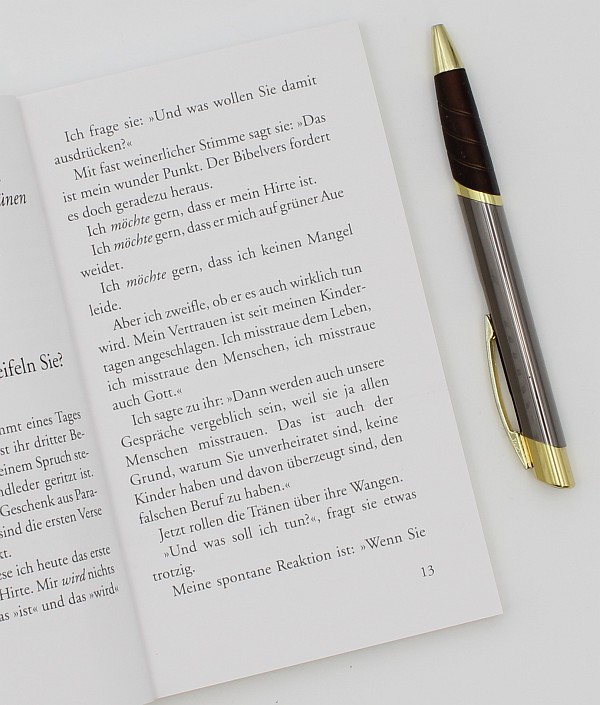 inen
eifeln Sie?
mmt eines Tages
st ihr dritter Be-
einem Spruch ste-
ndleder geritzt ist.
Geschenk aus Para-
sind die ersten Verse
kt.
ese ich heute das erste
Hirte. Mir wird nichts
as »ist« und das »wird«
Ich frage sie: »Und was wollen Sie damit
ausdrücken?«
Mit fast weinerlicher Stimme sagt sie: »Das
ist mein wunder Punkt. Der Bibelvers fordert
es doch geradezu heraus.
Ich möchte gern, dass er mein Hirte ist.
Ich möchte gern, dass er mich auf grüner Aue
weidet.
Ich möchte gern, dass ich keinen Mangel
leide.
Aber ich zweifle, ob er es auch wirklich tun
wird. Mein Vertrauen ist seit meinen Kinder-
tagen angeschlagen. Ich misstraue dem Leben,
ich misstraue den Menschen, ich misstraue
auch Gott.«
Ich sagte zu ihr: »Dann werden auch unsere
Gespräche vergeblich sein, weil sie ja allen
Menschen misstrauen. Das ist auch der
Grund, warum Sie unverheiratet sind, keine
Kinder haben und davon überzeugt sind, den
falschen Beruf zu haben.«
Jetzt rollen die Tränen über ihre Wangen.
»Und was soll ich tun?«, fragt sie etwas
trotzig.
Meine spontane Reaktion ist: »Wenn Sie
13